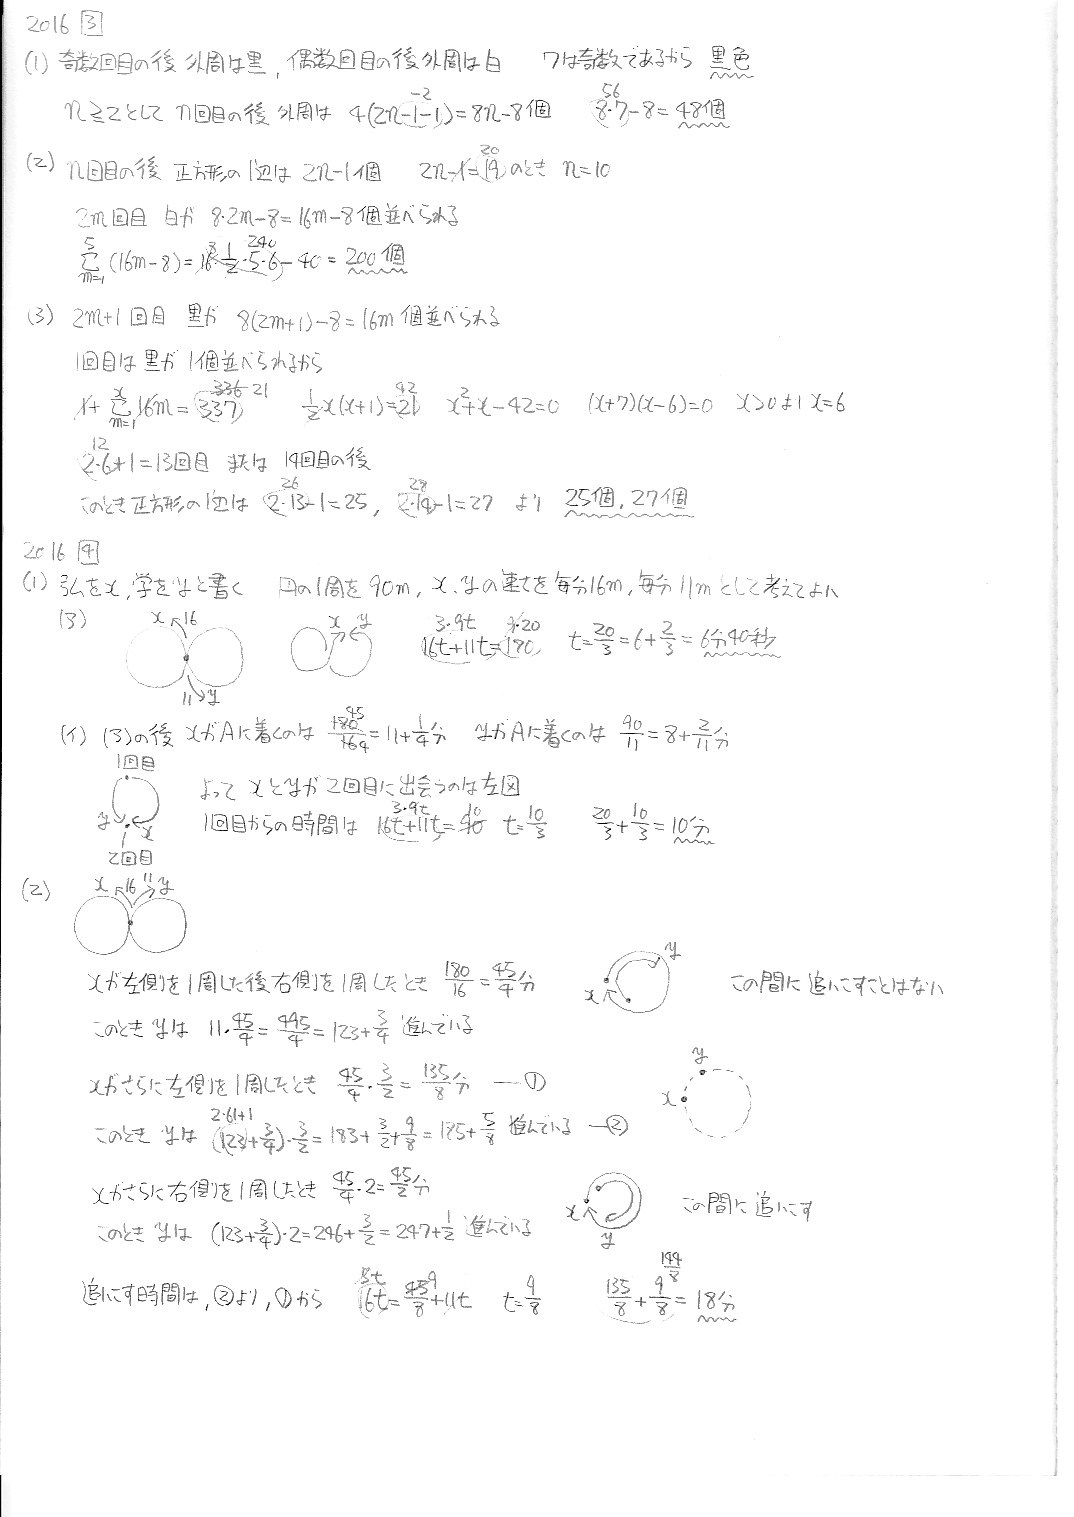 2016 3
(1) 奇数回目の後 外周は黒, 偶数回目の後 外周は白 7は奇数であるから 黒色
n≧2として n回目の後 外周は 4(2n-1-1)=8n-8個 8・7-8=48個
-2 56
(2) n回目の後 正方形の1辺は 2n-1個 2n-1=19のとき n=10
20
2m回目 白が 8・2m-8=16m-8個並べられる
5 8 240
Σ(16m-8)=16・1/2・5・6-40=200個
m=1
(3) 2m+1回目 黒が 8(2m+1)-8=16m個並べられる
1回目は黒が1個並べられるから
x 336 21 42
1+Σ16m=337 1/2x(x+1)=21 x²+x-42=0 (x+7)(x-6)=0 x>0より x=6
m=1
12
2・6+1=13回目 または 14回目の後
26 28
このとき正方形の1辺は 2・13-1=25, 2・14-1=27 より 25個, 27個
2016 4
(1) 弘をx, 学をyと書く 円の1周を90m, x, yの速さを毎分16m, 毎分11mとして考えてよい
(ア) x 16 11 y x y 3・9t 9・20
16t+11t=180 t=20/3=6+2/3=6分40秒
(イ) (ア)の後 xがAに着くのは 180/16=11+1/4分 yがAに着くのは 90/11=8+2/11分
45 4
1回目 y x 2回目
よって xとyが2回目に出会うのは左図
3・9t 10
1回目からの時間は 16t+11t=90 t=10/3 20/3+10/3=10分
(2) x 16 11 y
xが左側を1周した後右側を1周したとき 180/16=45/4分 x y この間に追いこすことはない
このとき yは 11・45/4=495/4=123+3/4 進んでいる
xがさらに左側を1周したとき 45/4・3/2=135/8分 ―① x y
2・61+1
このとき yは (123+3/4)・3/2=183+3/2+9/8=185+5/8 進んでいる ―②
xがさらに右側を1周したとき 45/4・2=45/2分 x y この間に追いこす
このとき yは (123+3/4)・2=246+3/2=247+1/2 進んでいる
5t 9 144/8
追いこす時間は, ②より, ①から 16t=45/8+11t t=9/8 135/8+9/8=18分